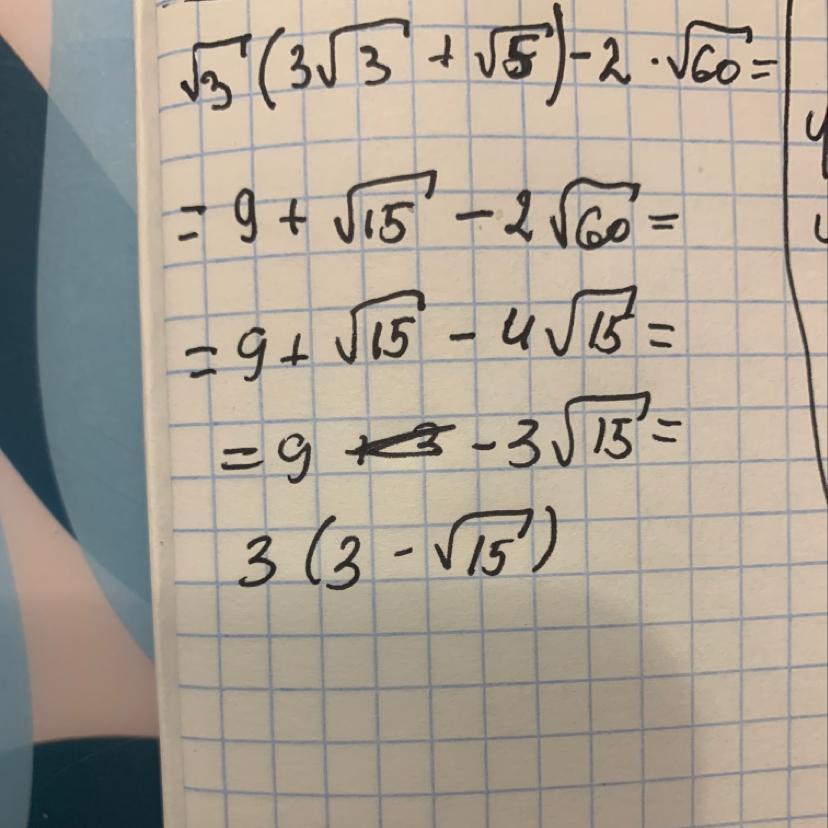 √3 (3√3 + √5) - 2 · √60 =
= 9 + √15 - 2√60 =
= 9 + √15 - 4√15 =
= 9 - 3√15 =
3 (3 - √15)